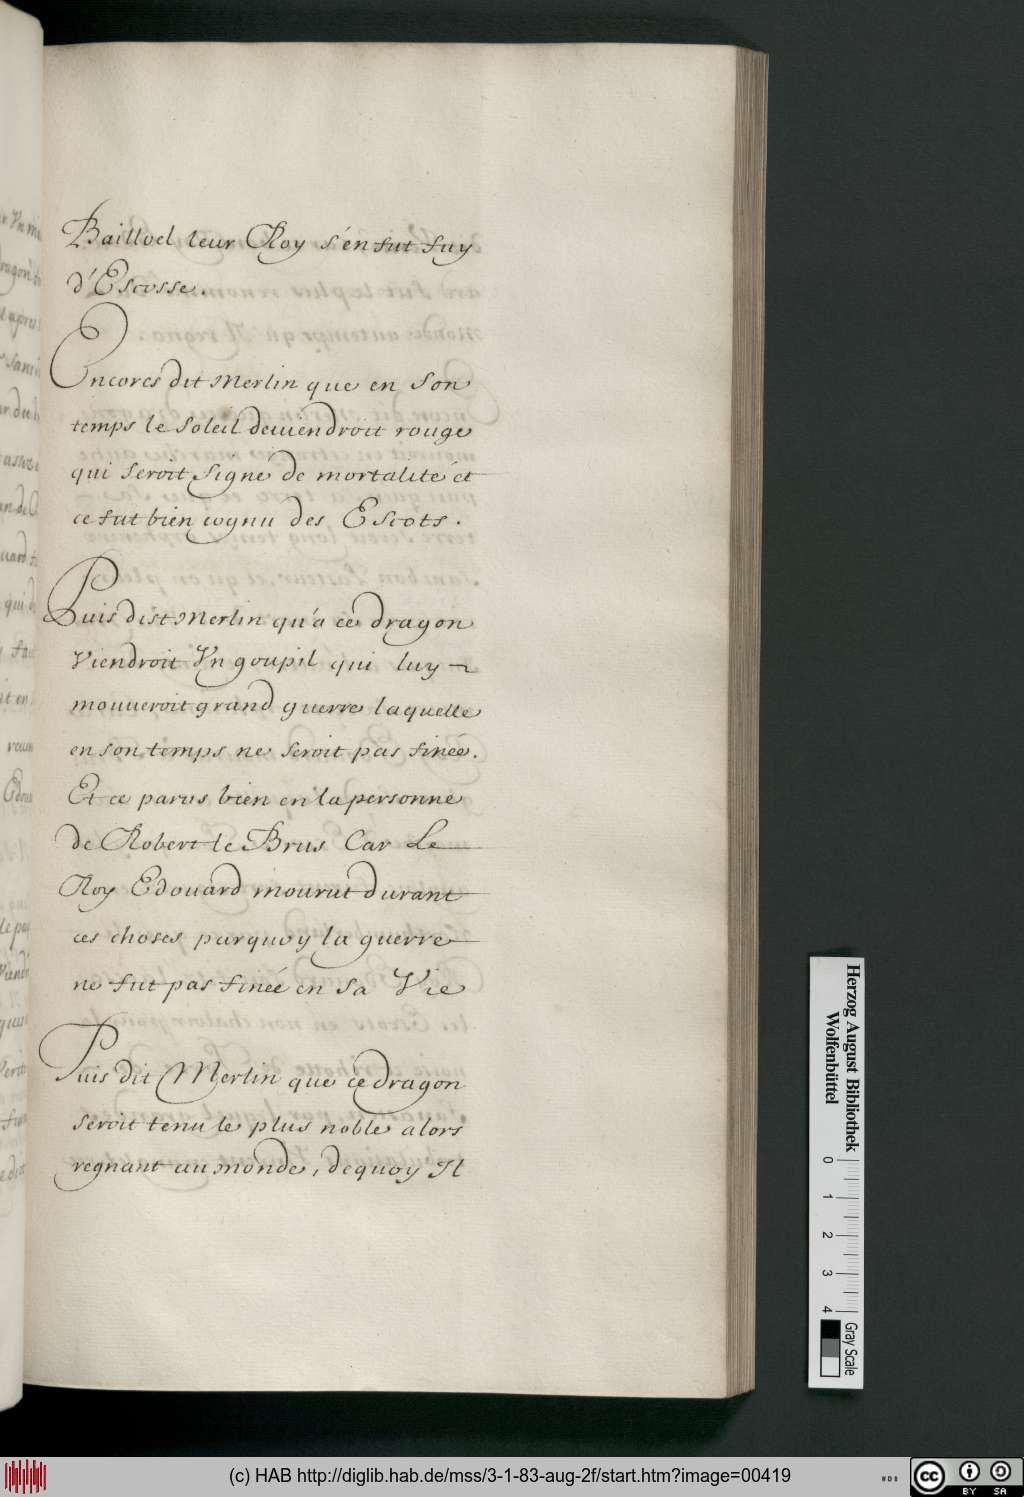 Bailloel leur Roy s'en fut fuy
d'Escosse.
Encores dit Merlin que en Son
temps le Soleil deuiendroit rouge
qui Seroit Signe de mortalité et
ce fut bien cognu des Escots.
Puis dist Merlin qu'a ce dragon
Viendroit Vn goupil qui luy
mouueroit grand guerre laquelle
en son temps ne Seroit pas finée.
Et ce parus bien en la personne
de Robert le Brus Car Le
Roy Edouard mourut durant
ces choses parquoy la guerre
ne fut pas finée en Sa Vie
Puis dit Merlin que ce dragon
seroit tenu le plus noble alors
regnant au monde, dequoy Il
Herzog August Bibliothek
Wolfenbüttel
0 1 2 3 4
Gray Scale
(c) HAB http://diglib.hab.de/mss/3-1-83-aug-2f/start.htm?image=00419
WDB
cc BY SA